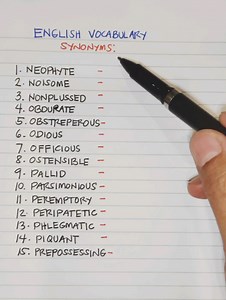 ENGLISH VOCABULARY
SYNONYMS:
1. NEOPHYTE -
2. NOISOME -
3. NONPLUSSED -
4. OBDURATE -
5. OBSTREPEROUS -
6. ODIOUS -
7. OFFICIOUS -
8. OSTENSIBLE -
9. PALLID -
10. PARSIMONIOUS -
11. PEREMPTORY -
12. PERIPATETIC -
13. PHLEGMATIC -
14. PIQUANT -
15. PREPOSSESSING -